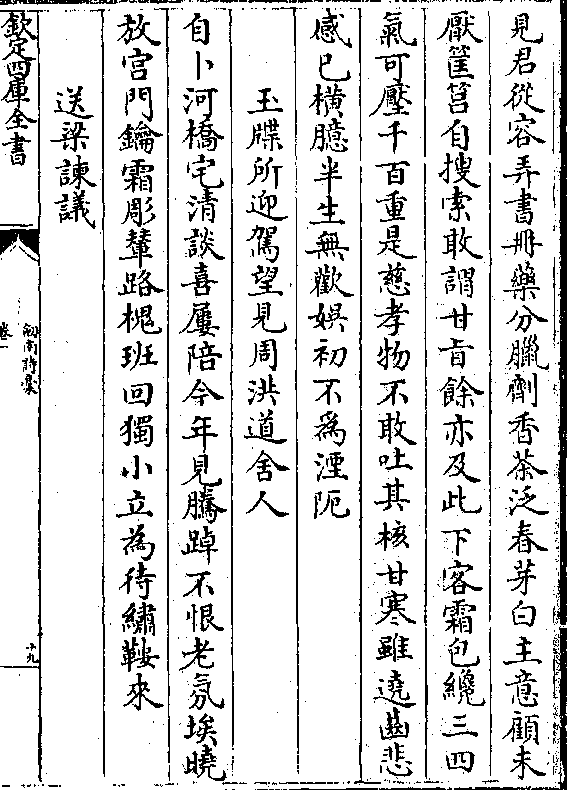 見君從容弄書冊藥分臘劑香茶泛春芽白主意顧未
厭筐筥自搜索敢謂甘旨餘亦及此下客霜包纔三四
氣可壓千百重是慈孝物不敢吐其核甘寒雖遶齒悲
感已橫臆半生無歡娛初不為湮阨
玉牒所迎駕望見周洪道舍人
自卜河橋宅清談喜屢陪今年見騰踔不恨老氛埃曉
放宮門鑰霜彫輦路槐班回獨小立為待繡鞍來
送梁諫議
欽定四庫全書
劍南詩稾
卷一
十九